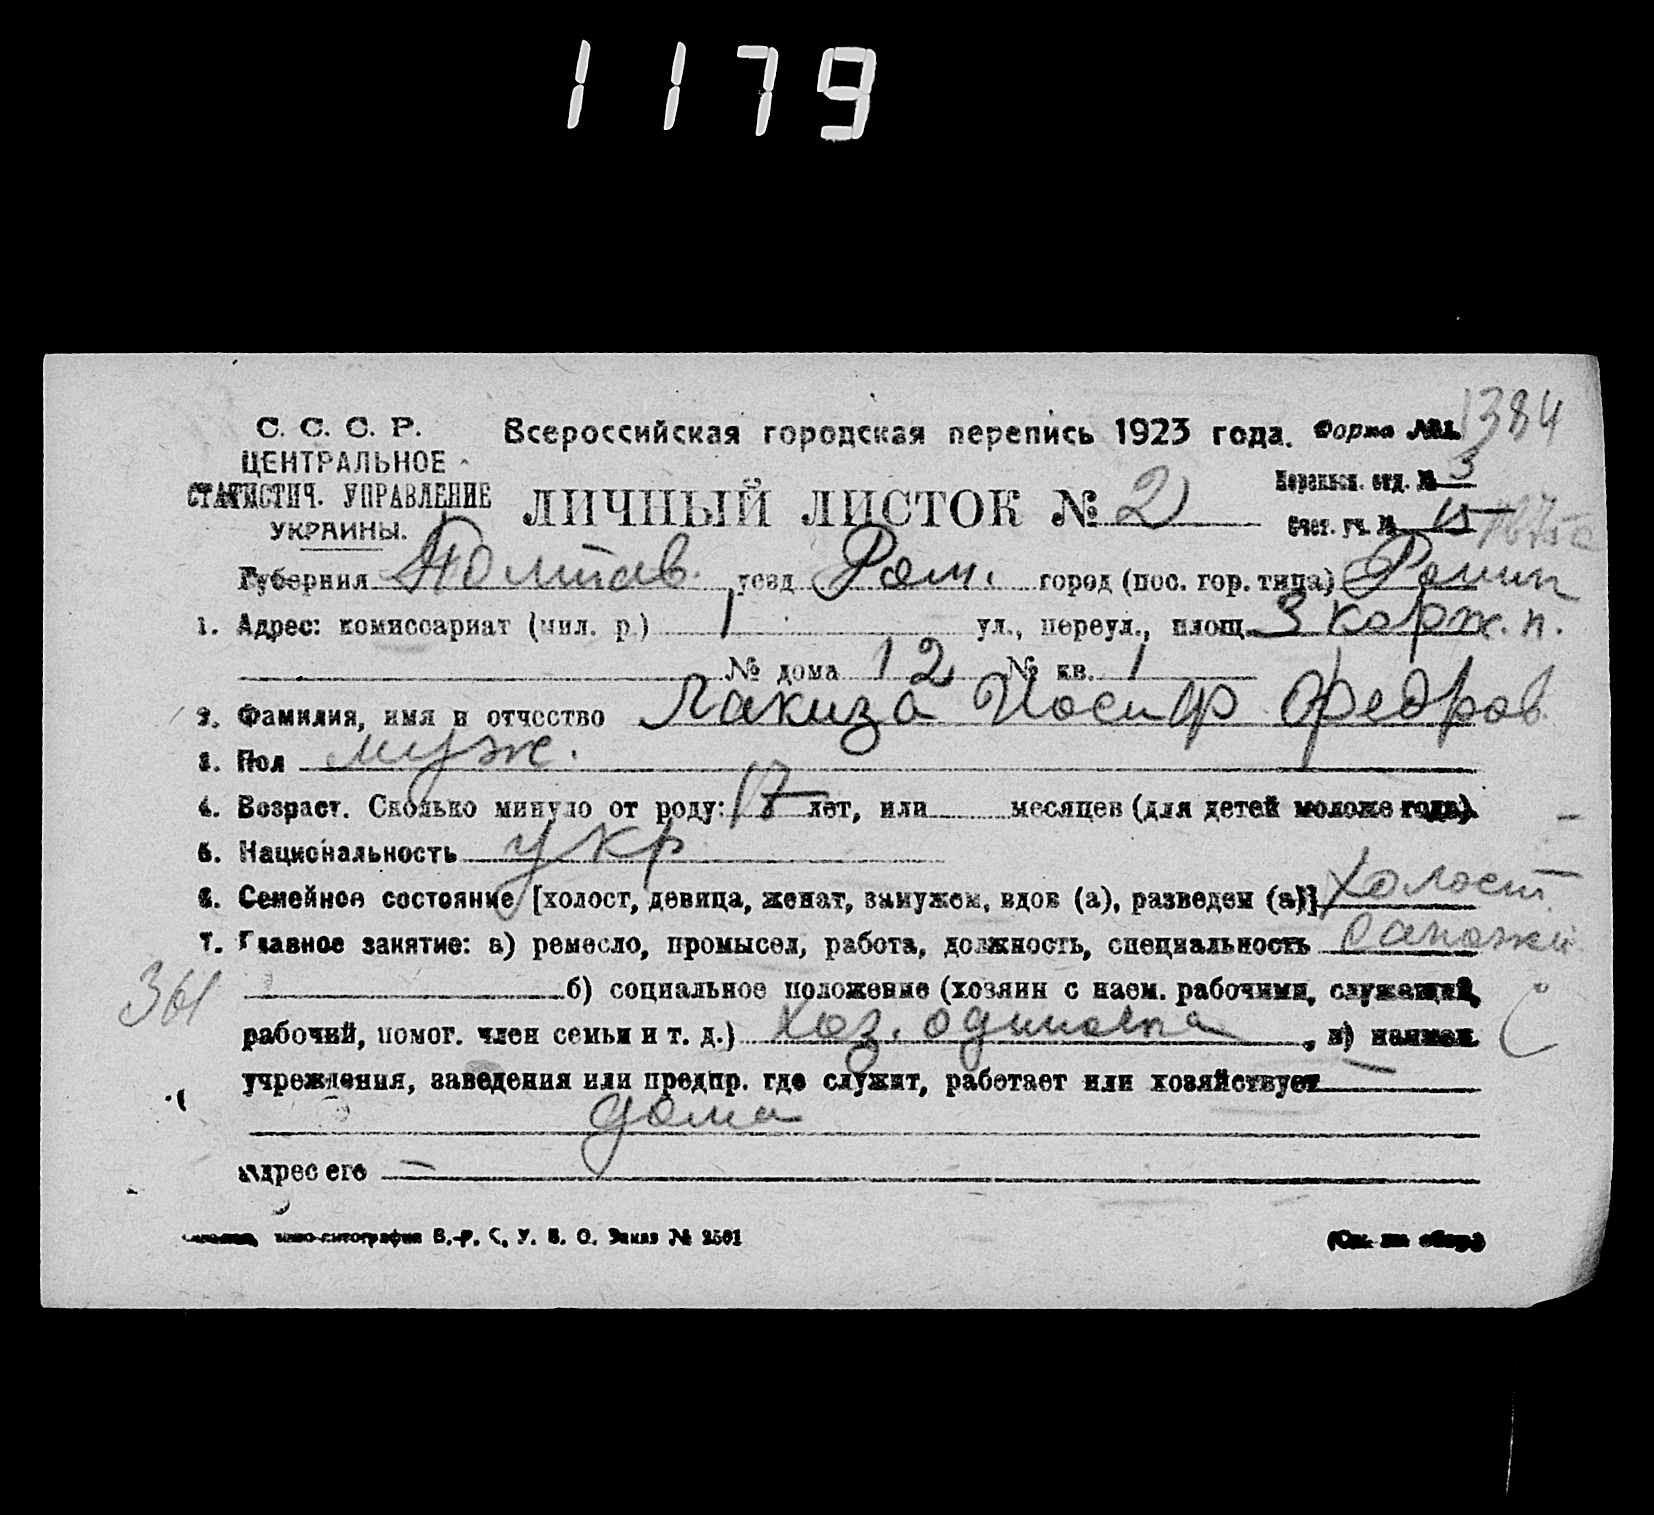 1179
1384
С. С. С. Р.
ЦЕНТРАЛЬНОЕ
СТАТИСТИЧ. УПРАВЛЕНИЕ
УКРАИНЫ.
Всероссийская городская перепись 1923 года. Форма №1.
Переписн. отд. № 3
ЛИЧНЫЙ ЛИСТОК № 2
Счет. уч. № 15
Губерния Полтав. уезд Ром. город (пос. гор. типа) Ромны
1. Адрес: комиссариат (мил. р.) 1 ул., переул., площ. 3 корж. п.
№ дома 12 № кв. 1
2. Фамилия, имя и отчество Лакиза Иосиф Федров
3. Пол муж.
4. Возраст. Сколько минуло от роду: 17 лет, или месяцев (для детей моложе года).
5. Национальность укр
6. Семейное состояние [холост, девица, женат, замужем, вдов (а), разведен (а)] холост.
7. Главное занятие: а) ремесло, промысел, работа, должность, специальность сапожн
361
б) социальное положение (хозяин с наем. рабочими, служащий,
рабочий, помог. член семьи и т. д.) Хоз. одиночка, в) наимен.
учреждения, заведения или предпр. где служит, работает или хозяйствует —
дома
адрес его —
типо-литография В.-Р. С. У. В. О. Заказ № 2501
(См. на обор.)